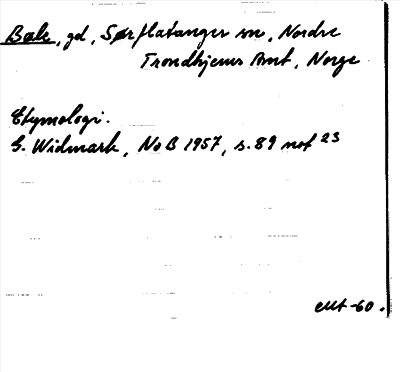 Bøle, gd, Sørflatanger sn, Nordre
Trondhjems Amt, Norge
Etymologi.
G. Widmark, NoB 1957, s. 89 not 23
-60.